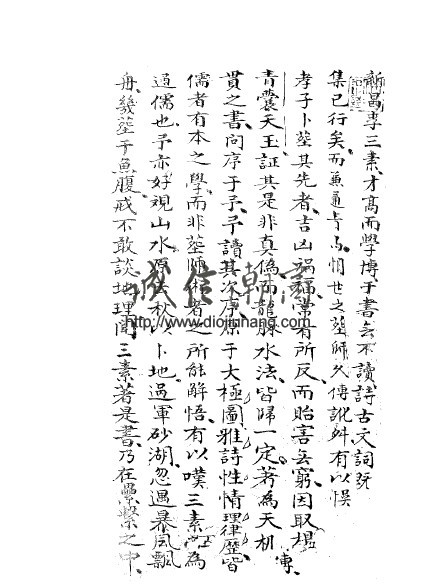 新昌李三素才高而學博于書無不讀詩古文詞既
集已行矣而兼通青烏憫世之塟師久傳訛舛有以悞
孝子卜塟其先者吉凶禍福常有所反而貽害無窮因取楊
青囊天玉証其是非真偽而龍脉水法皆歸一定著為天機
貫之書問序于予予讀其次序原于大極圖雅詩性情理律歷皆
儒者有本之學而非塟師術者之所能解悟有以嘆三素為
通儒也予亦好視山水原去秋以卜地過軍砂湖忽遇暴風飄
舟幾塟于魚腹戒不敢談地理聞三素著是書乃在縲繫之中
誠信朝
http://www.diojinhang.com/